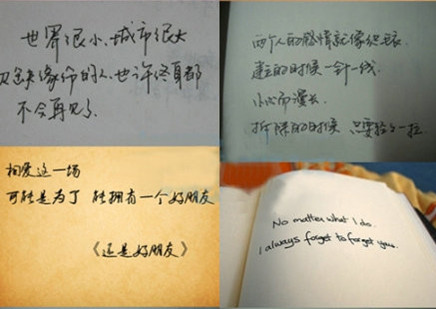 世界很小、城市很大
没有缘份的人、也许终身都
不会再见了
两个人的感情就像织毛衣
建立的时候一针一线
小心而漫长
拆除的时候 只要轻轻一拉
相爱这一场
可能是为了 能拥有一个好朋友
《还是好朋友》
No matter what I do.
I always forget to forget you.